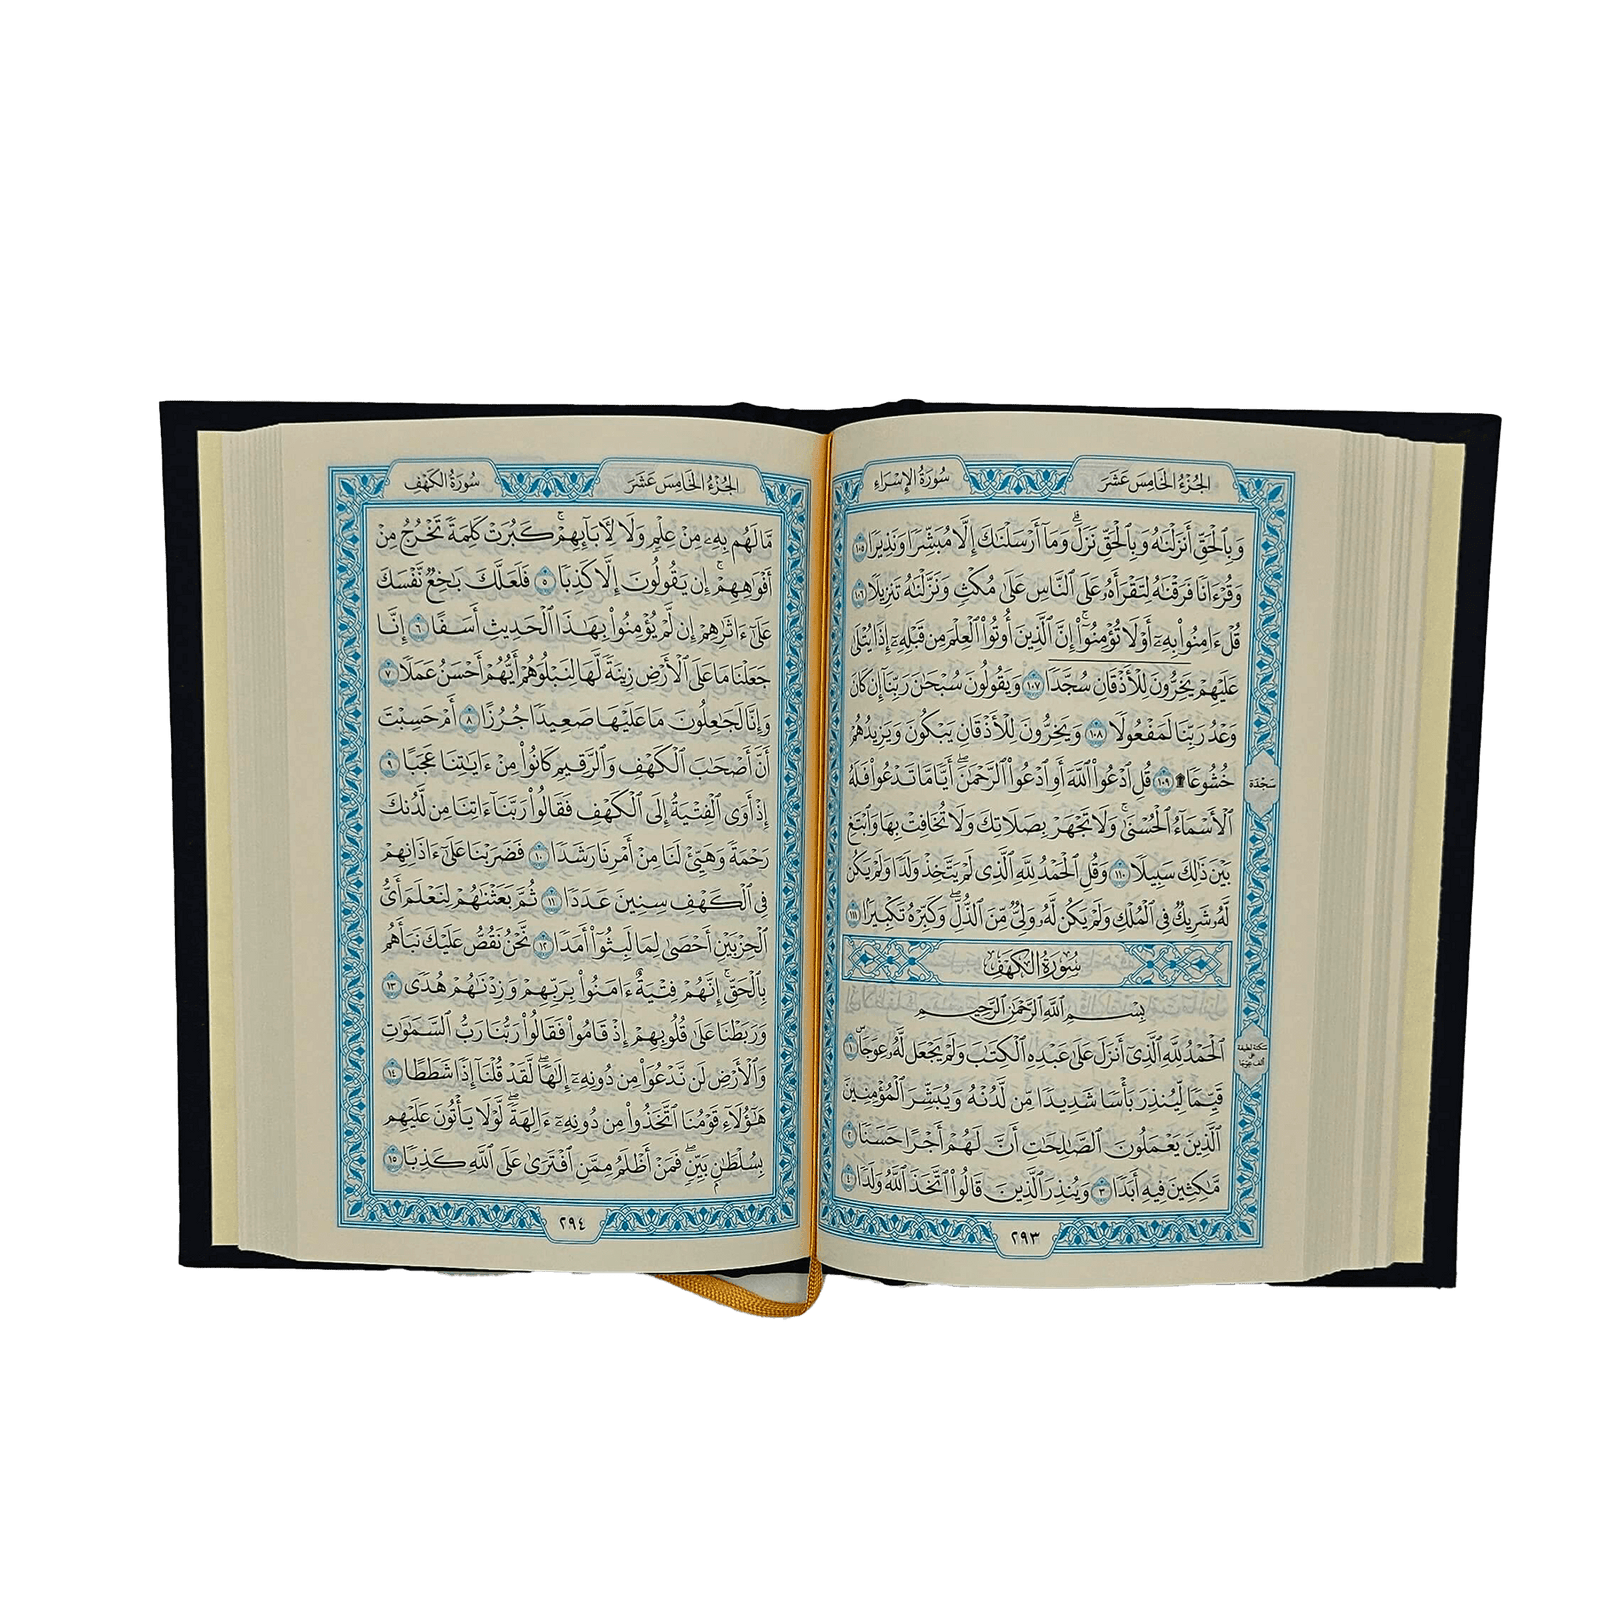 الجزء الخامس عشر سورة الإسراء
وَبِٱلْحَقِّ أَنزَلْنَٰهُ وَبِٱلْحَقِّ نَزَلَۗ وَمَآ أَرْسَلْنَٰكَ إِلَّا مُبَشِّرًا وَنَذِيرًا ١٠٥
وَقُرْءَانًا فَرَقْنَٰهُ لِتَقْرَأَهُۥ عَلَى ٱلنَّاسِ عَلَىٰ مُكْثٍ وَنَزَّلْنَٰهُ تَنزِيلًا ١٠٦
قُلْ ءَامِنُوا۟ بِهِۦٓ أَوْ لَا تُؤْمِنُوٓا۟ۚ إِنَّ ٱلَّذِينَ أُوتُوا۟ ٱلْعِلْمَ مِن قَبْلِهِۦٓ إِذَا يُتْلَىٰ
عَلَيْهِمْ يَخِرُّونَ لِلْأَذْقَانِ سُجَّدًا ١٠٧ وَيَقُولُونَ سُبْحَٰنَ رَبِّنَآ إِن كَانَ
وَعْدُ رَبِّنَا لَمَفْعُولًا ١٠٨ وَيَخِرُّونَ لِلْأَذْقَانِ يَبْكُونَ وَيَزِيدُهُمْ
خُشُوعًا ۩ ١٠٩ قُلِ ٱدْعُوا۟ ٱللَّهَ أَوِ ٱدْعُوا۟ ٱلرَّحْمَٰنَۖ أَيًّا مَّا تَدْعُوا۟ فَلَهُ
سَجْدَة
ٱلْأَسْمَآءُ ٱلْحُسْنَىٰۚ وَلَا تَجْهَرْ بِصَلَاتِكَ وَلَا تُخَافِتْ بِهَا وَٱبْتَغِ
بَيْنَ ذَٰلِكَ سَبِيلًا ١١٠ وَقُلِ ٱلْحَمْدُ لِلَّهِ ٱلَّذِى لَمْ يَتَّخِذْ وَلَدًا وَلَمْ يَكُن
لَّهُۥ شَرِيكٌ فِى ٱلْمُلْكِ وَلَمْ يَكُن لَّهُۥ وَلِىٌّ مِّنَ ٱلذُّلِّۖ وَكَبِّرْهُ تَكْبِيرًا ١١١
سُورَةُ الكَهْفِ
بِسْمِ ٱللَّهِ ٱلرَّحْمَٰنِ ٱلرَّحِيمِ
ٱلْحَمْدُ لِلَّهِ ٱلَّذِىٓ أَنزَلَ عَلَىٰ عَبْدِهِ ٱلْكِتَٰبَ وَلَمْ يَجْعَل لَّهُۥ عِوَجَاۜ ١
سكتة لطيفة
على
ألف عوجا
قَيِّمًا لِّيُنذِرَ بَأْسًا شَدِيدًا مِّن لَّدُنْهُ وَيُبَشِّرَ ٱلْمُؤْمِنِينَ
ٱلَّذِينَ يَعْمَلُونَ ٱلصَّٰلِحَٰتِ أَنَّ لَهُمْ أَجْرًا حَسَنًا ٢
مَّٰكِثِينَ فِيهِ أَبَدًا ٣ وَيُنذِرَ ٱلَّذِينَ قَالُوا۟ ٱتَّخَذَ ٱللَّهُ وَلَدًا ٤
٢٩٣
الجزء الخامس عشر سورة الكهف
مَّا لَهُم بِهِۦ مِنْ عِلْمٍ وَلَا لِءَابَآئِهِمْۚ كَبُرَتْ كَلِمَةً تَخْرُجُ مِنْ
أَفْوَٰهِهِمْۚ إِن يَقُولُونَ إِلَّا كَذِبًا ٥ فَلَعَلَّكَ بَٰخِعٌ نَّفْسَكَ
عَلَىٰٓ ءَاثَٰرِهِمْ إِن لَّمْ يُؤْمِنُوا۟ بِهَٰذَا ٱلْحَدِيثِ أَسَفًا ٦ إِنَّا
جَعَلْنَا مَا عَلَى ٱلْأَرْضِ زِينَةً لَّهَا لِنَبْلُوَهُمْ أَيُّهُمْ أَحْسَنُ عَمَلًا ٧
وَإِنَّا لَجَٰعِلُونَ مَا عَلَيْهَا صَعِيدًا جُرُزًا ٨ أَمْ حَسِبْتَ
أَنَّ أَصْحَٰبَ ٱلْكَهْفِ وَٱلرَّقِيمِ كَانُوا۟ مِنْ ءَايَٰتِنَا عَجَبًا ٩
إِذْ أَوَى ٱلْفِتْيَةُ إِلَى ٱلْكَهْفِ فَقَالُوا۟ رَبَّنَآ ءَاتِنَا مِن لَّدُنكَ
رَحْمَةً وَهَيِّئْ لَنَا مِنْ أَمْرِنَا رَشَدًا ١٠ فَضَرَبْنَا عَلَىٰٓ ءَاذَانِهِمْ
فِى ٱلْكَهْفِ سِنِينَ عَدَدًا ١١ ثُمَّ بَعَثْنَٰهُمْ لِنَعْلَمَ أَىُّ
ٱلْحِزْبَيْنِ أَحْصَىٰ لِمَا لَبِثُوٓا۟ أَمَدًا ١٢ نَّحْنُ نَقُصُّ عَلَيْكَ نَبَأَهُم
بِٱلْحَقِّۚ إِنَّهُمْ فِتْيَةٌ ءَامَنُوا۟ بِرَبِّهِمْ وَزِدْنَٰهُمْ هُدًى ١٣
وَرَبَطْنَا عَلَىٰ قُلُوبِهِمْ إِذْ قَامُوا۟ فَقَالُوا۟ رَبُّنَا رَبُّ ٱلسَّمَٰوَٰتِ
وَٱلْأَرْضِ لَن نَّدْعُوَا۟ مِن دُونِهِۦٓ إِلَٰهًاۖ لَّقَدْ قُلْنَآ إِذًا شَطَطًا ١٤
هَٰٓؤُلَآءِ قَوْمُنَا ٱتَّخَذُوا۟ مِن دُونِهِۦٓ ءَالِهَةًۖ لَّوْلَا يَأْتُونَ عَلَيْهِم
بِسُلْطَٰنٍۭ بَيِّنٍۖ فَمَنْ أَظْلَمُ مِمَّنِ ٱفْتَرَىٰ عَلَى ٱللَّهِ كَذِبًا ١٥
٢٩٤